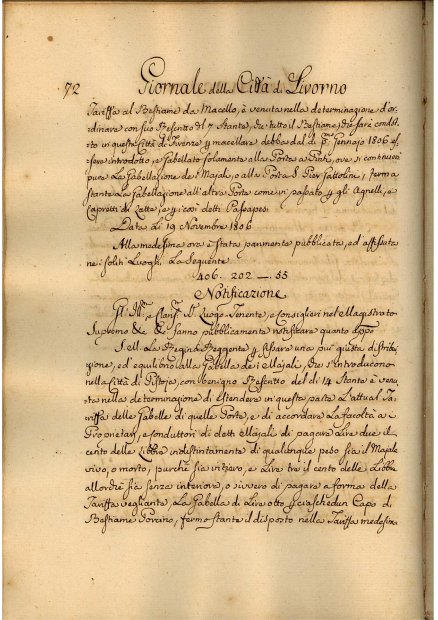 72 Giornale della Città di Livorno
Tariffa al Bestiame da Macello, è venuta nella determinazione d'or-
dinare con suo Rescritto del 7 Stante, che tutto il Bestiame, che sarà condot-
to in questa Città di Firenze p macellare debba dal dì p.º Gennajo 1806 es-
sere introdotto, e gabellato solamente alla Porta a Pinti, ove si continuerà
pure la Gabellazione de' Majali, o alla Porta S. Pier Gattolini, ferma
stante la Gabellazione all'altre Porte come p il passato p gli Agnelli, e
Capretti di Latte, e p i così detti
Data li 19 Novembre 1806
Alla medesima ora è stata parimente pubblicata, ed affissata
ne i soliti Luoghi la seguente
406. 202 — 55
Notificazione
Gl' Ill.mi e Clariss. SS. Luogo-Tenente, e Consiglieri nel Magistrato
Supremo &c &c fanno pubblicamente notificare quanto
S. M. La Regina Reggente p fissare una più giusta distribu-
zione, ed equilibrio alla Gabella dei Majali, che s'introducono
nella Città di Pistoja, con benigno Rescritto del dì 14 Stante è venu-
ta nella determinazione di estendere in questa parte l'attual Ta-
riffa delle Gabelle di quelle Porte, e di accordare la facoltà a i
Proprietarj, e conduttori di detti Majali di pagare Lire due il
cento delle Libbre indistintamente di qualunque peso sia il Majale
vivo, o morto, purchè sia intero, e Lire tre il cento delle Libbre
allorchè sia senza interiora, o ovvero di pagare a forma della
Tariffa vegliante, la Gabella di Lire otto p ciaschedun Capo di
Bestiame Porcino, fermo stante il disposto nella Tariffa medesima